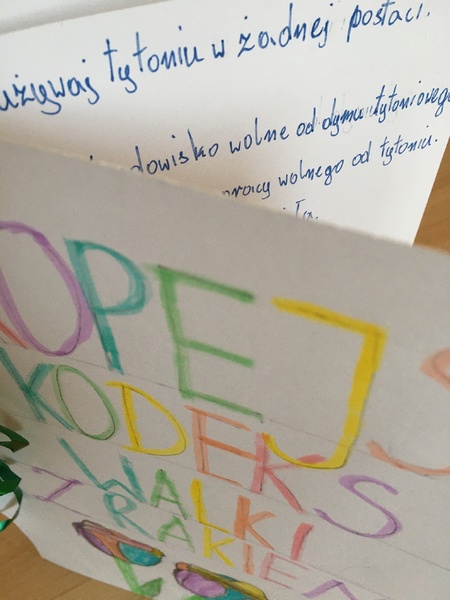 używaj tytoniu w żadnej postaci.
dowisko wolne od dymu tytoniowego
pracy wolnego od tytoniu.
OPEJS
KODEKS
WALKI
Z RAKIEM